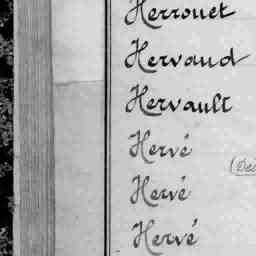 Herrouet
Hervaud
Hervault
Hervé
Hervé
Hervé